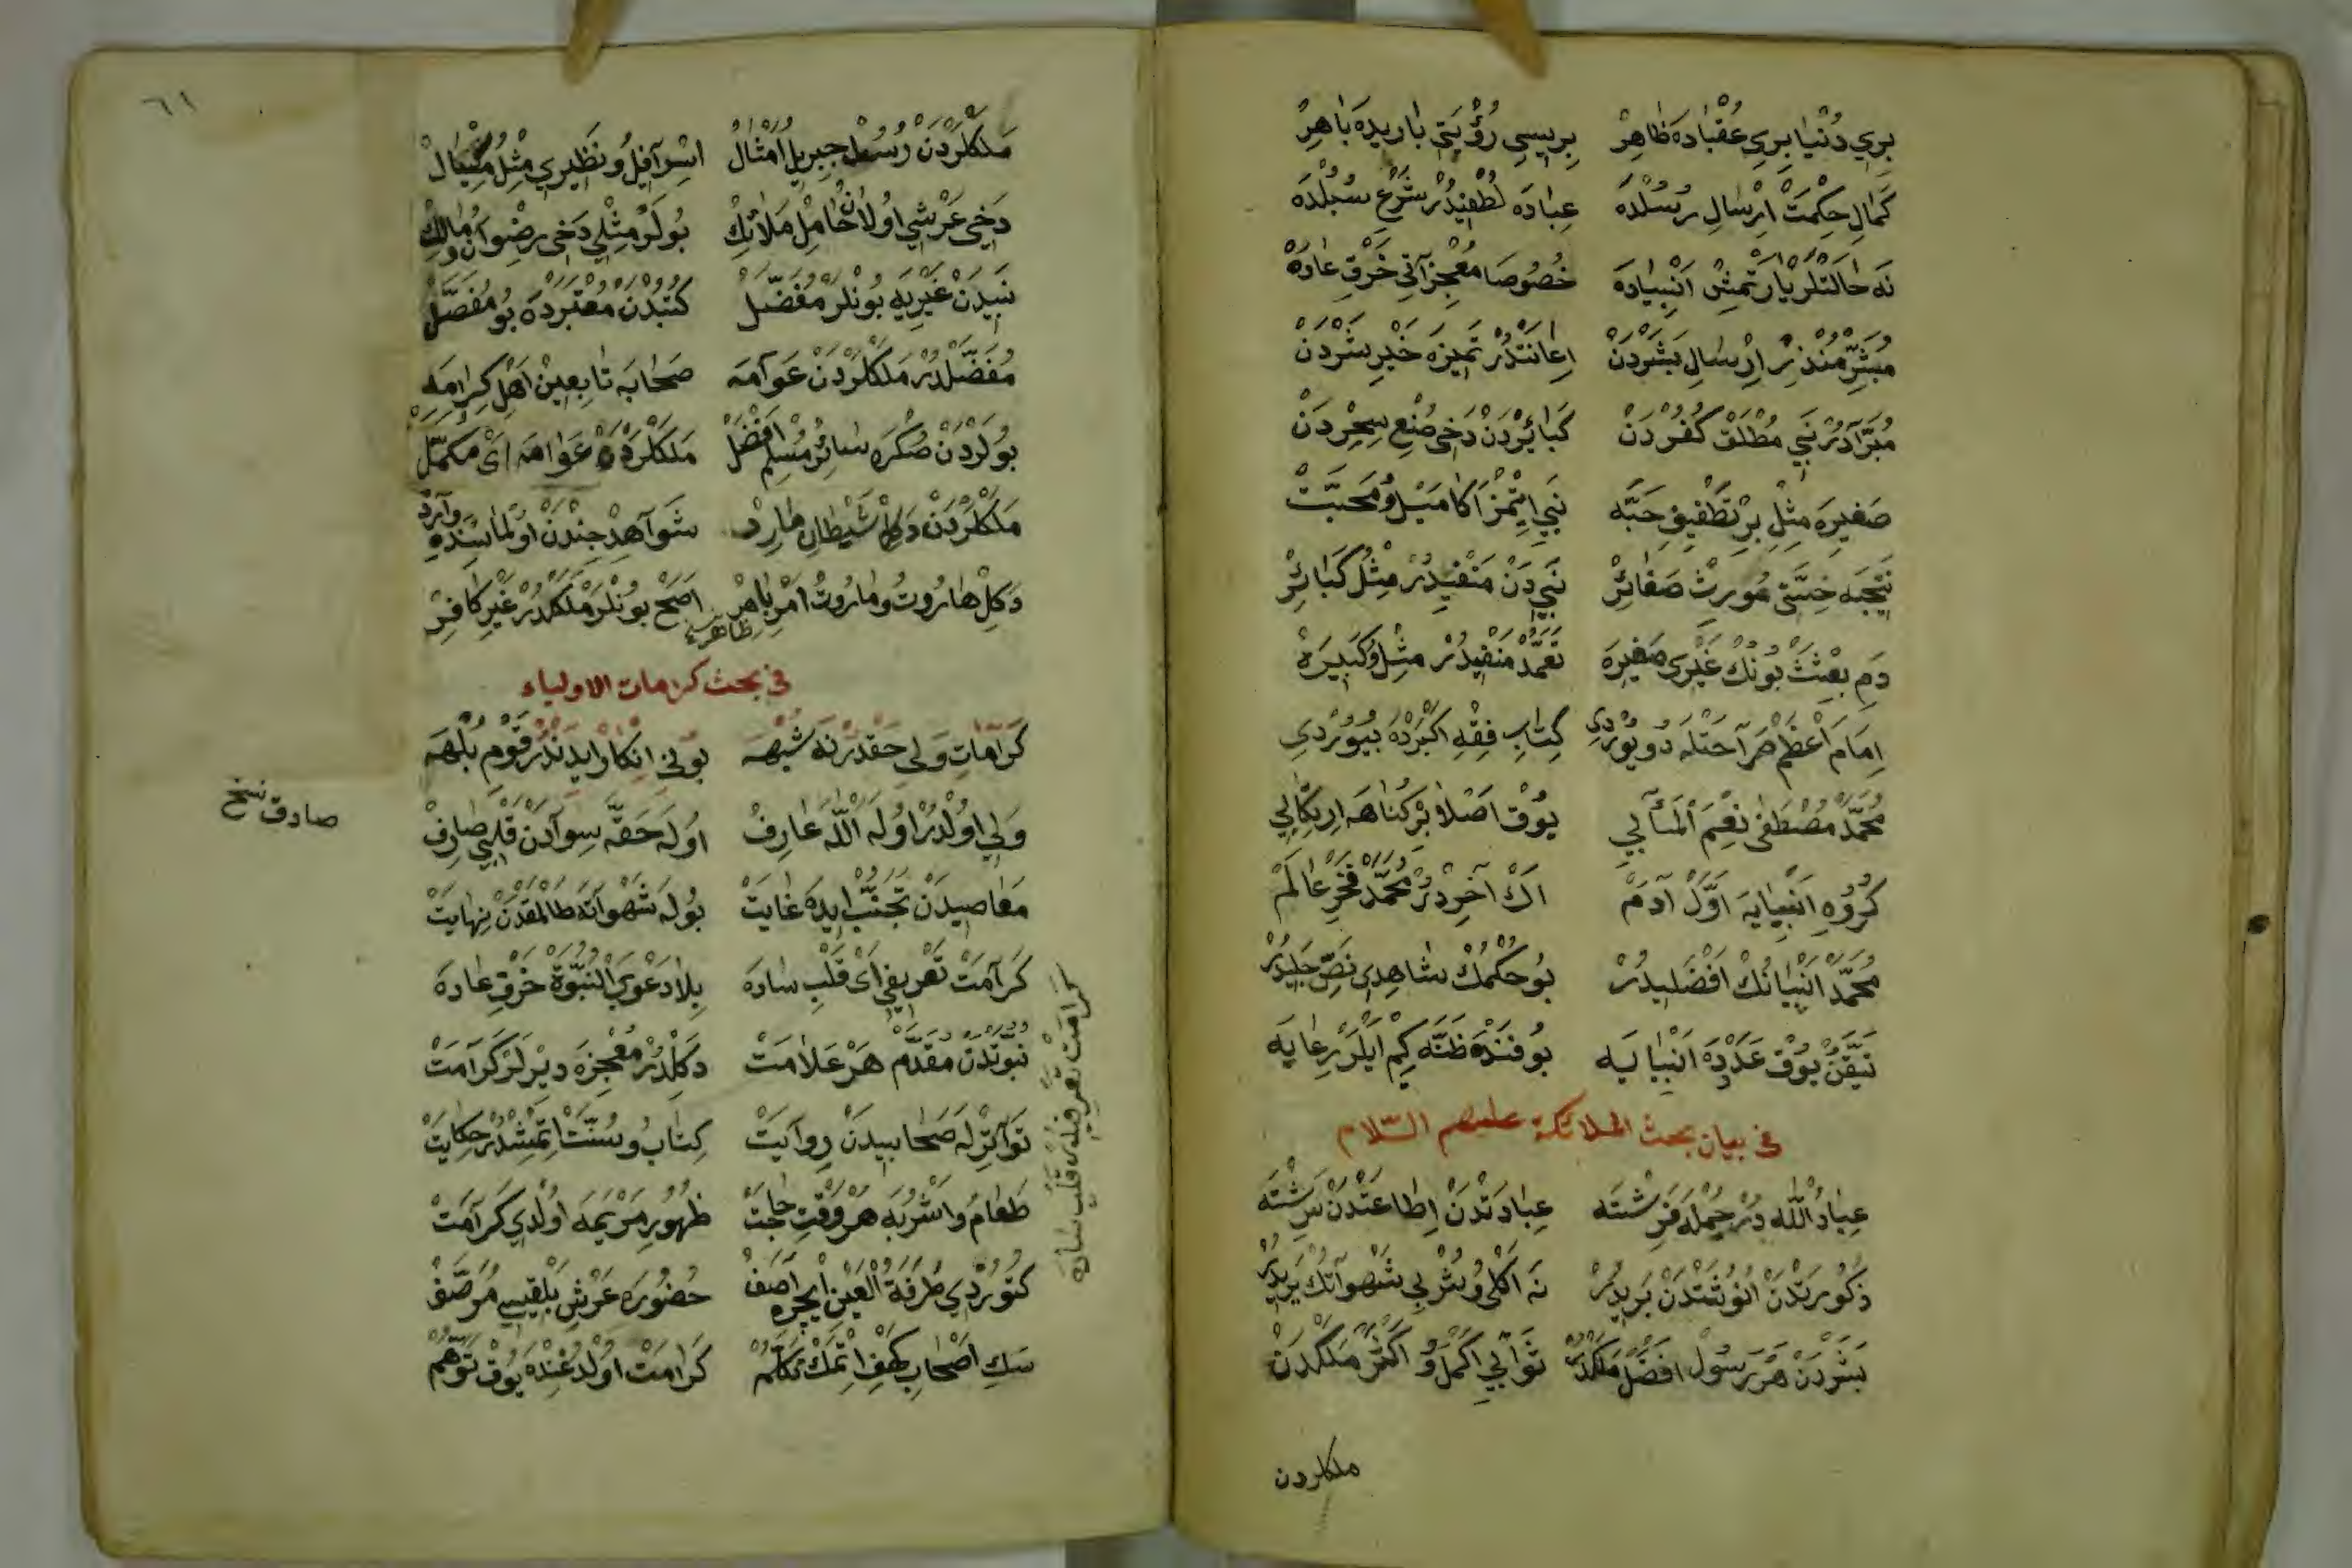 بِرِي دُنْيَا بِرِي عُقْبَادَه ظَاهِرْ بِرِيسِي رُؤْيَتِي بَارِيدَه بَاهِرْ
كَمَالِ حِكْمَتْ اِرْسَالِ رُسُلْدَه عِبَادَه لُطْفِيدُرْ شَرْعِ سُبُلْدَه
نَه حَالَتْلَرْ يَارَتْمِشْ اَنْبِيَادَه خُصُوصَا مُعْجِزَاتِي خَرْقِ عَادَه
مُبَشِّرْ مُنْذِرْ اِرْسَالِ بَشَرْدَنْ اِعَانَتْدُرْ تَمِيزَه خَيْرِ شَرْدَنْ
مُبَرَّادُرْ نَبِي مُطْلَقْ كُفُرْدَنْ كَبَائِرْدَنْ دَخِي صُنْعِ سِحِرْدَنْ
صَغِيرَه مِثْلِ بِرْ تَطْفِيفِ حَبَّه نَبِي اِيتْمَزْ اَكَا مَيْل وُ مَحَبَّتْ
نَتِيجَه خِسَّتِي مُورِثْ صَغَائِرْ نَبِيدَنْ مَنْفِيدُرْ مِثْلُ كَبَائِرْ
دَمِ بِعْثَتْ بُونُكْ غَيْرِي صَغِيرَه تَعَمُّدْ مَنْفِيدُرْ مِثْل وُ كَبِيرَه
اِمَامِ اَعْظَمْ صَرَاحَتْلَه دُويُورْدِي كِتَابِ فِقْهِ اَكْبَرْدَه بُيُورْدِي
مُحَمَّدْ مُصْطَفَى نِعْمَ الْمَآلِي يُوقْ اَصْلَا بِرْ كُنَاهَه اِرْتِكَابِي
كُرُوهِ اَنْبِيَايَه اَوَّلْ آدَمْ اَكْ آخِرْدُرْ مُحَمَّدْ فَخْرِ عَالَمْ
مُحَمَّدْ اَنْبِيَانُكْ اَفْضَلِيدُرْ بُو حُكْمُكْ شَاهِدِي نَصِّ جَلِيدُرْ
تَيَقُّنْ يُوقْ عَدَدْدَه اَنْبِيَايَه بُو فَنْدَه ظَنَّه كِيمْ اَيْلَرْ رِعَايَه
فى بيان بحث الملائكة عليهم السّلام
عِبَادُ اللّٰه دُرْ جُمْلَه فَرِشْتَه عِبَادَتْدَنْ اِطَاعَتْدَنْ سَرِشْتَه
ذُكُورَتْدَنْ اُنُوثَتْدَنْ بَرِيدُرْ نَه اَكْلِ وُ شُرْبِي شَهْوَاتُكْ يَرِيدُرْ
بَشَرْدَنْ هَرْ رَسُولْ اَفْضَلْ مَلَكْدَنْ ثَوَابِي اَكْمَل وُ اَكْثَرْ مَلَكْدَنْ
ملكلردن
٦١
مَلَكْلَرْدَنْ رُسُلْ جِبْرِيلْ اَمْثَالْ اِسْرَافِيل وُ نَظِيرِي مِثْلُ مِيكَالْ
دَخِي عَرْشِي اُولَانْ حَامِلْ مَلَائِكْ بُولَرْ مِثْلِي دَخِي رِضْوَان وُ مَالِكْ
نَبِيدَنْ غَيْرِيَه بُونْلَرْ مُفَضَّلْ كُتُبْدَنْ مُعْتَبَرْدَه بُو مُفَصَّلْ
مُفَضَّلْدُرْ مَلَكْلَرْدَنْ عَوَامَه صَحَابَه تَابِعِينْ اَهْلِ كِرَامَه
بُولَرْدَنْ صُكْرَه سَائِرْ مُسْلِمْ اَفْضَلْ مَلَكْلَرْدَنْ عَوَامَه اَىْ مُكَمَّلْ
مَلَكْلَرْدَنْ دَكِلْ شَيْطَانِ مَارِدْ شَوَاهِدْ جِنْدَنْ اُولْمَاسِنْدَه وَارِدْ
دَكِلْ هَارُوتُ وَمَارُوتْ اَمْرِ بَاهِرْ ظاهر اَصَحْ بُونْلَرْ مَلَكْدُرْ غَيْرِ كَافِرْ
فى بحث كرامات الاولياء
كَرَامَاتِ وَلِي حَقْدُرْ نَه شُبْهَه بُونِي اِنْكَارْ اِيدَنْدُرْ قَوْمِ بُلْهَه
وَلِي اُولْدُرْ اُولَه اَللّٰهَ عَارِفْ اُولَه حَقَّه سِوَادَنْ قَلْبِي صَارِفْ
صادق نسخ
مَعَاصِيدَنْ تَجَنُّبْ اِيدَه غَايَتْ بُولَه شَهْوَاتَه طَالْمَقْدَنْ نِهَايَتْ
كَرَامَتْ تَعْرِيفِي اَىْ قَلْبِ سَادَه بِلَا دَعْوَى النُّبُوَّة خَرْقِ عَادَه
كرامت تعريفى اى قلب ساده
نُبُوَّتْدَنْ مُقَدَّمْ هَرْ عَلَامَتْ دَكِلْدُرْ مُعْجِزَه دِيرْلَرْ كَرَامَتْ
تَوَاتُرْلَه صَحَابِيدَنْ رِوَايَتْ كِتَابُ و سُنَّتْ اِتْمِشْدُرْ حِكَايَتْ
طَعَامُ و اَشْرِبَه هَرْ وَقْتِ حَاجَتْ ظُهُورِ مَرْيَمَه اُولْدِي كَرَامَتْ
كَتُورْدِي طَرْفَةُ الْعَيْنْ اِيچْرَه آصَفْ حُضُورَه عَرْشِ بَلْقِيسِ مُرَصَّفْ
سَكِ اَصْحَابِ كَهْفِ اِتْمَكْ تَكَلُّمْ كَرَامَتْ اُولْدُغِنْدَه يُوقْ تَوَهُّمْ